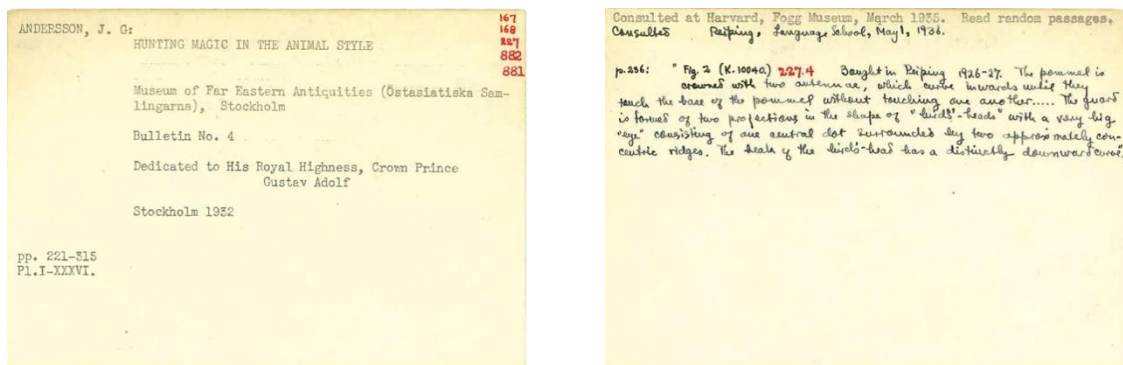 ANDERSSON, J. G:
HUNTING MAGIC IN THE ANIMAL STYLE
167
168
227
882
881
Museum of Far Eastern Antiquities (Östasiatiska Sam-
lingarna), Stockholm
Bulletin No. 4
Dedicated to His Royal Highness, Crown Prince
Gustav Adolf
Stockholm 1932
pp. 221-315
Pl.I-XXXVI.
Consulted at Harvard, Fogg Museum, March 1935. Read random passages.
Consulted Peiping, Language School, May 1, 1936.
p.236: "Fig. 2 (K.10040) 227.4 Bought in Peiping 1926-27. The pommel is
crowned with two antennae, which curve inwards until they
touch the base of the pommel without touching one another..... The guard
is formed of two projections in the shape of "birds'-heads" with a very big
"eye" consisting of one central dot surrounded by two approximately con-
centric ridges. The beak of the bird's-head has a distinctly downward curve".